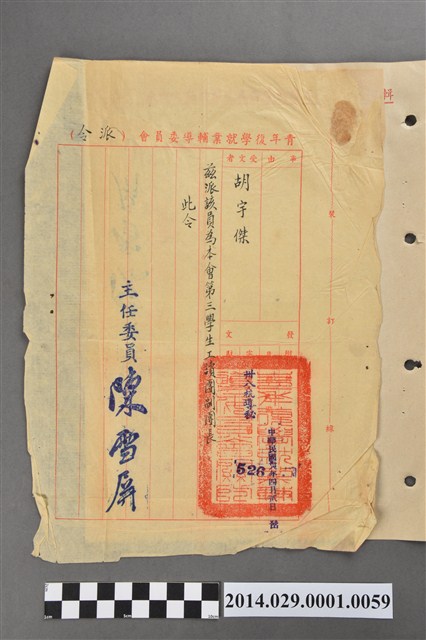 青年復學就業輔導委員會(派令)
事由
受文者
胡宇傑
茲派該員為本會第三學生工讀團副團長
此令
主任委員 陳雪屏
發文
號
訂
線
卅八
526
中華民國卅八年四月
輯
2014.029.0001.0059